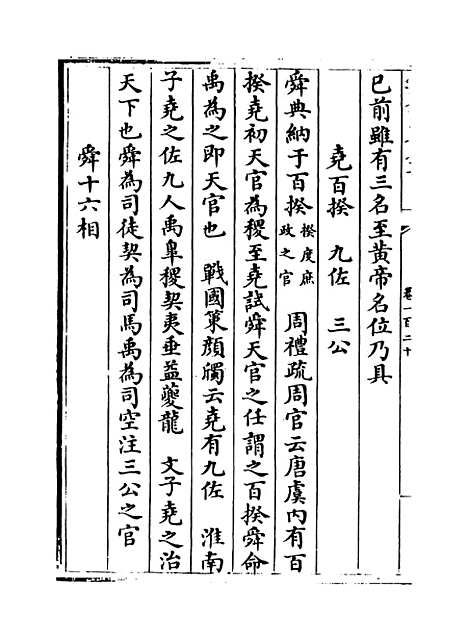 已前雖有三名至黄帝名位乃具
堯百揆　九佐　三公
舜典納于百揆揆度庶政之官　周禮疏周官云唐虞内有百
揆堯初天官為稷至堯試舜天官之任謂之百揆舜命
禹為之即天官也　戰國策顔斶云堯有九佐　淮南
子堯之佐九人禹臯稷契夷垂益夔龍　文子堯之治
天下也舜為司徒契為司馬禹為司空注三公之官
舜十六相
卷一百二十